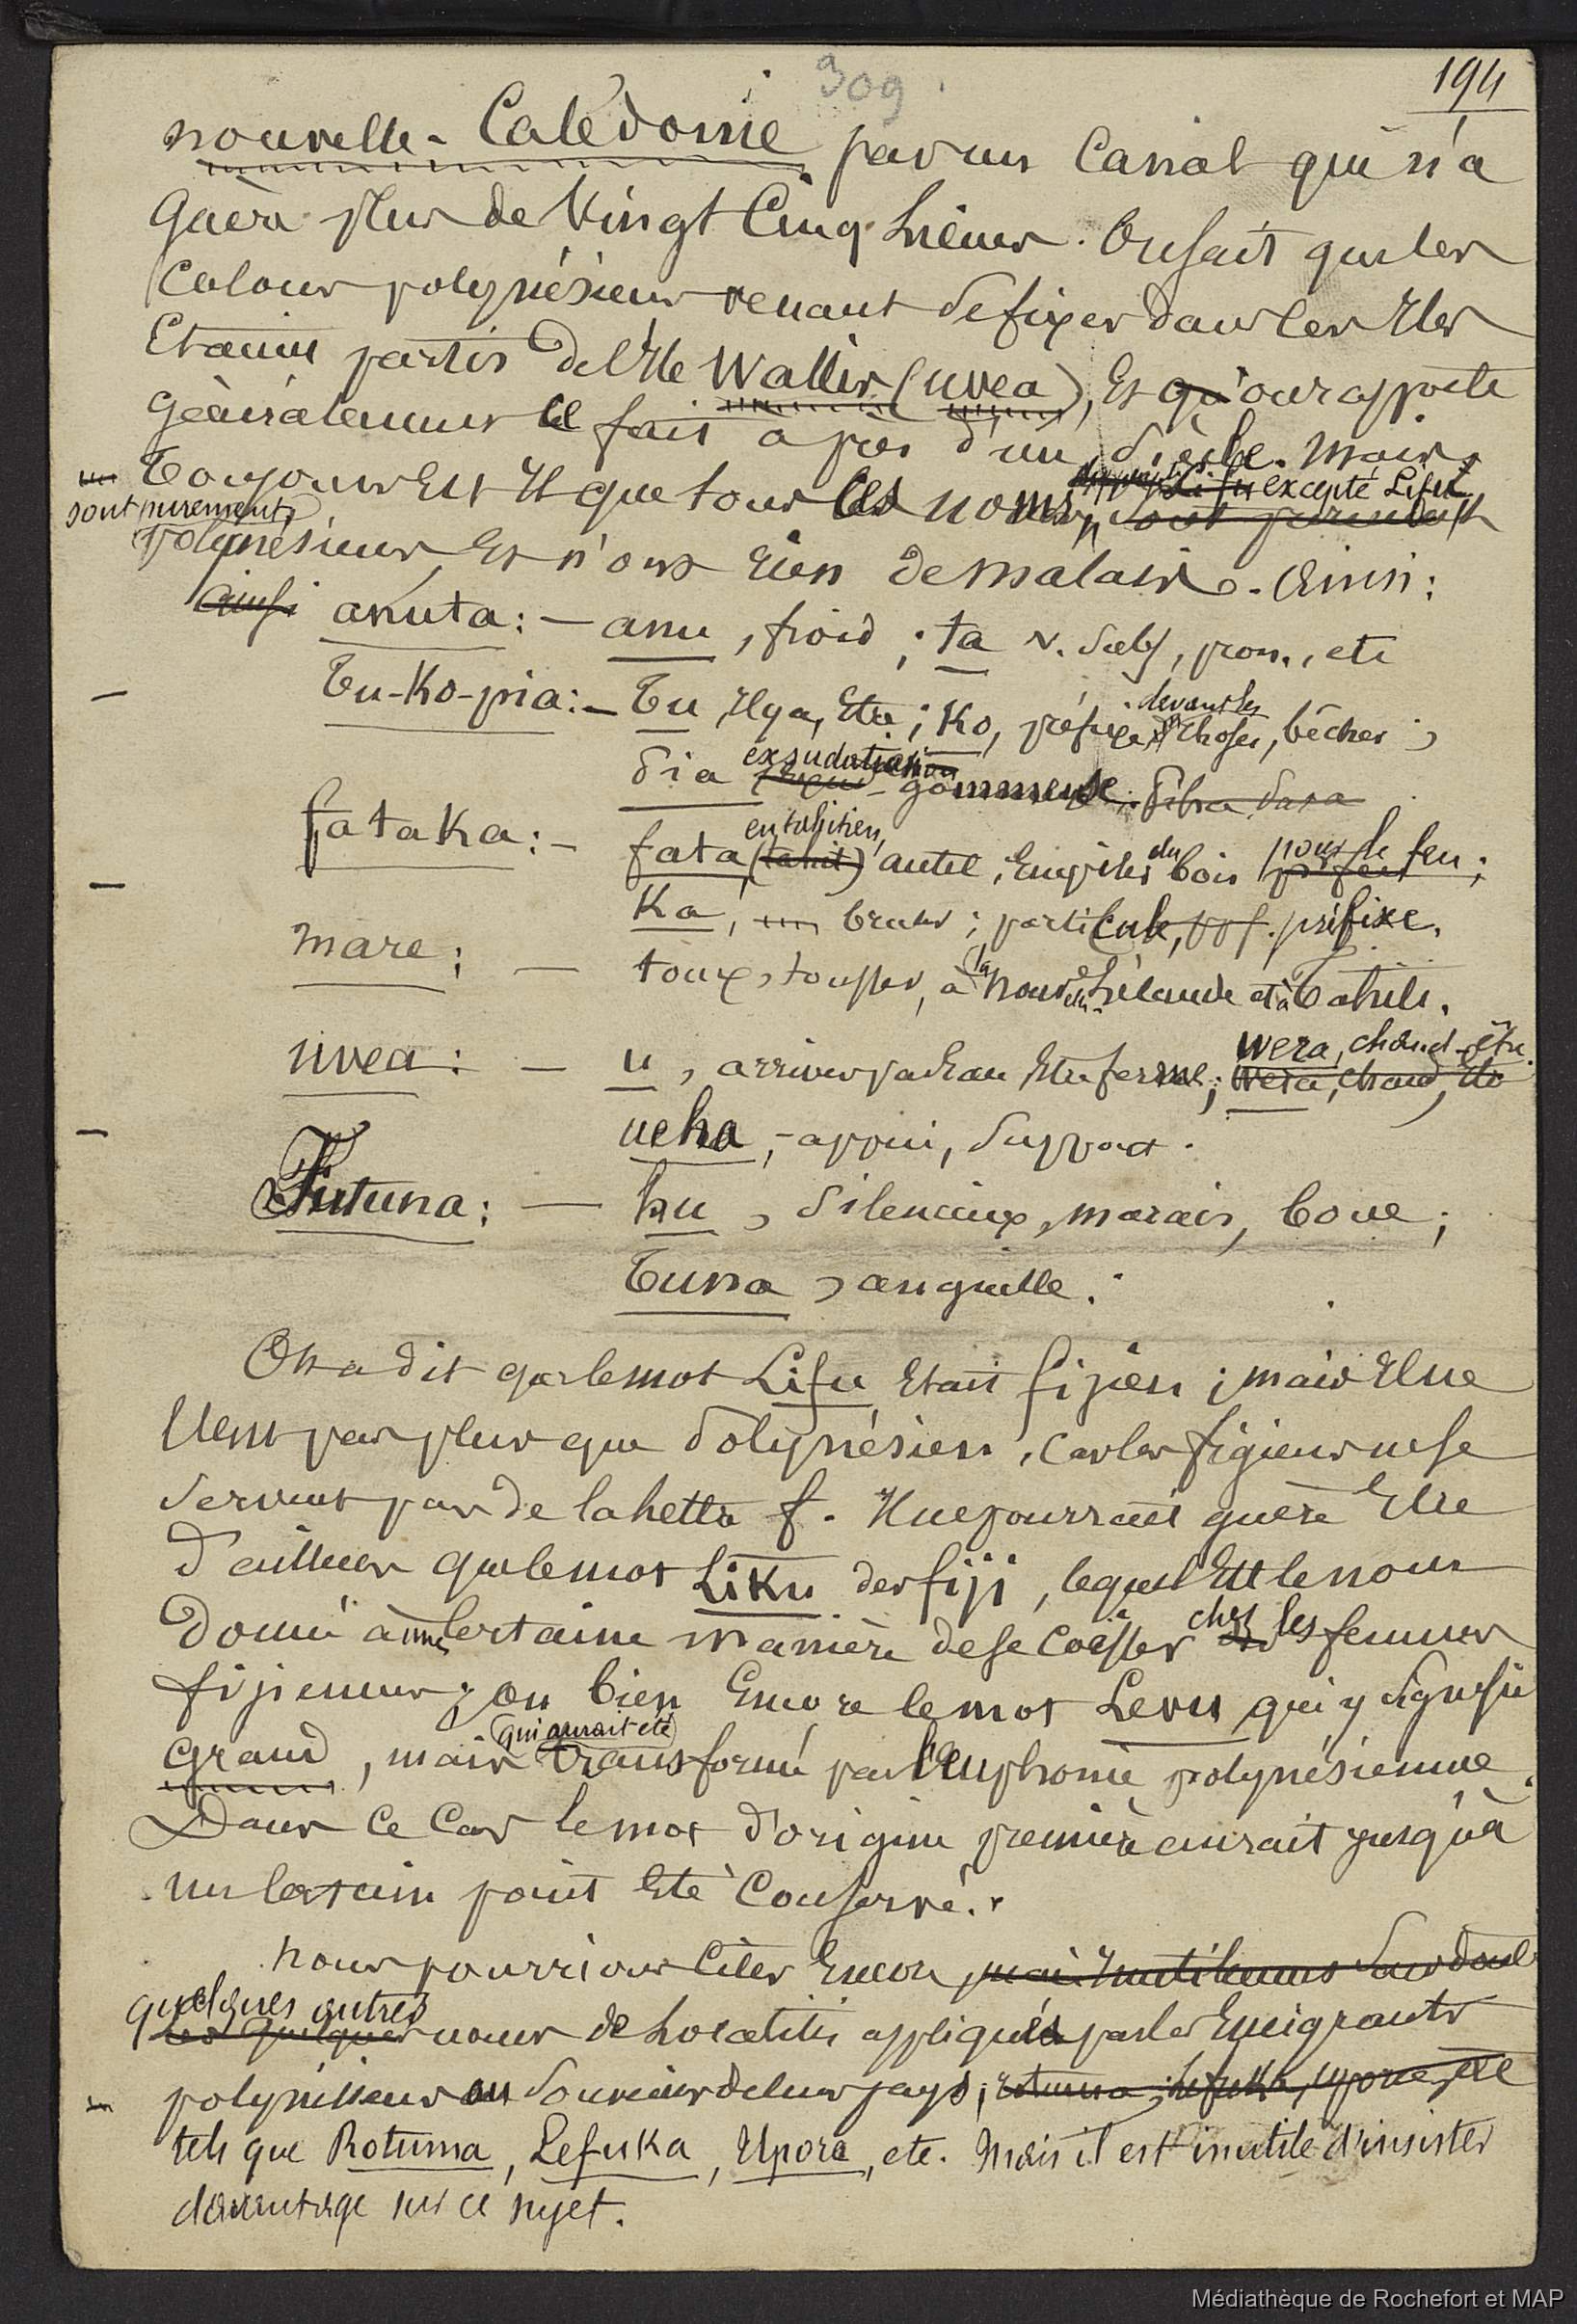 309
194
nouvelle-Calédonie par un Canal qui n'a
guère plus de Vingt Cinq Lieues. On sait que les
Colons polynésiens venant se fixer dans les Iles
Etaient partis de l'Ile Wallis (uvea), Et qu'on rapporte
Généralement le fait à près d'un Siècle. Mais
excepté Lifu
Toujours Est Il que tous les noms, sont purement
sont purement
Polynésiens, Et n'ont Rien de malais. Ainsi:
Ainsi anuta: — anu, froid; ta v. Subs, pron., etc
devant les
Tu-Ko-pia: — Tu, Il y a, Etre; Ko, préfixe choses, bêcher;
exsudation
Pia gommeuse.
en tahitien,
fataka: — fata, (tahit) autel, Empiler du bois pour le feu;
Ka, bruler; particule, préfixe.
mare; — toux, tousser, à la Nouvelle-Zélande et à Tahiti.
wera, chaud, être.
uvea: — u, arriver par Eau Et à terme; wera, chaud, Etc
ueha, - appui, Support.
Futuna: — hu, Silencieux, marais, boue;
Tuna, anguille.
On a dit que le mot Lifu Etait fijien; mais Il ne
l'Est pas plus que Polynésien, car les fijiens ne se
Servent pas de la Lettre f. Il ne pourrait guère Etre
d'ailleurs que le mot Liku des fiji, lequel Est le nom
Donné à une Certaine manière de se Coiffer chez les femmes
fijiennes; ou bien Encore le mot Levu qui y Signifie
qui aurait été
Grand, mais transformé par l'Euphonie polynésienne.
Dans Ce Cas le mot d'origine première aurait jusqu'à
un Certain point Eté Conservé.
Nous pourrions Citer Encore, mais Inutilement Sans doute
quelques autres
les quelques noms de Localités appliqués par les Emigrants
polynésiens en Souvenir de leur pays; rotuma, Lefuka, upora, etc
tels que Rotuma, Lefuka, Upora, etc. Mais il est inutile d'insister
davantage sur ce sujet.
Médiathèque de Rochefort et MAP